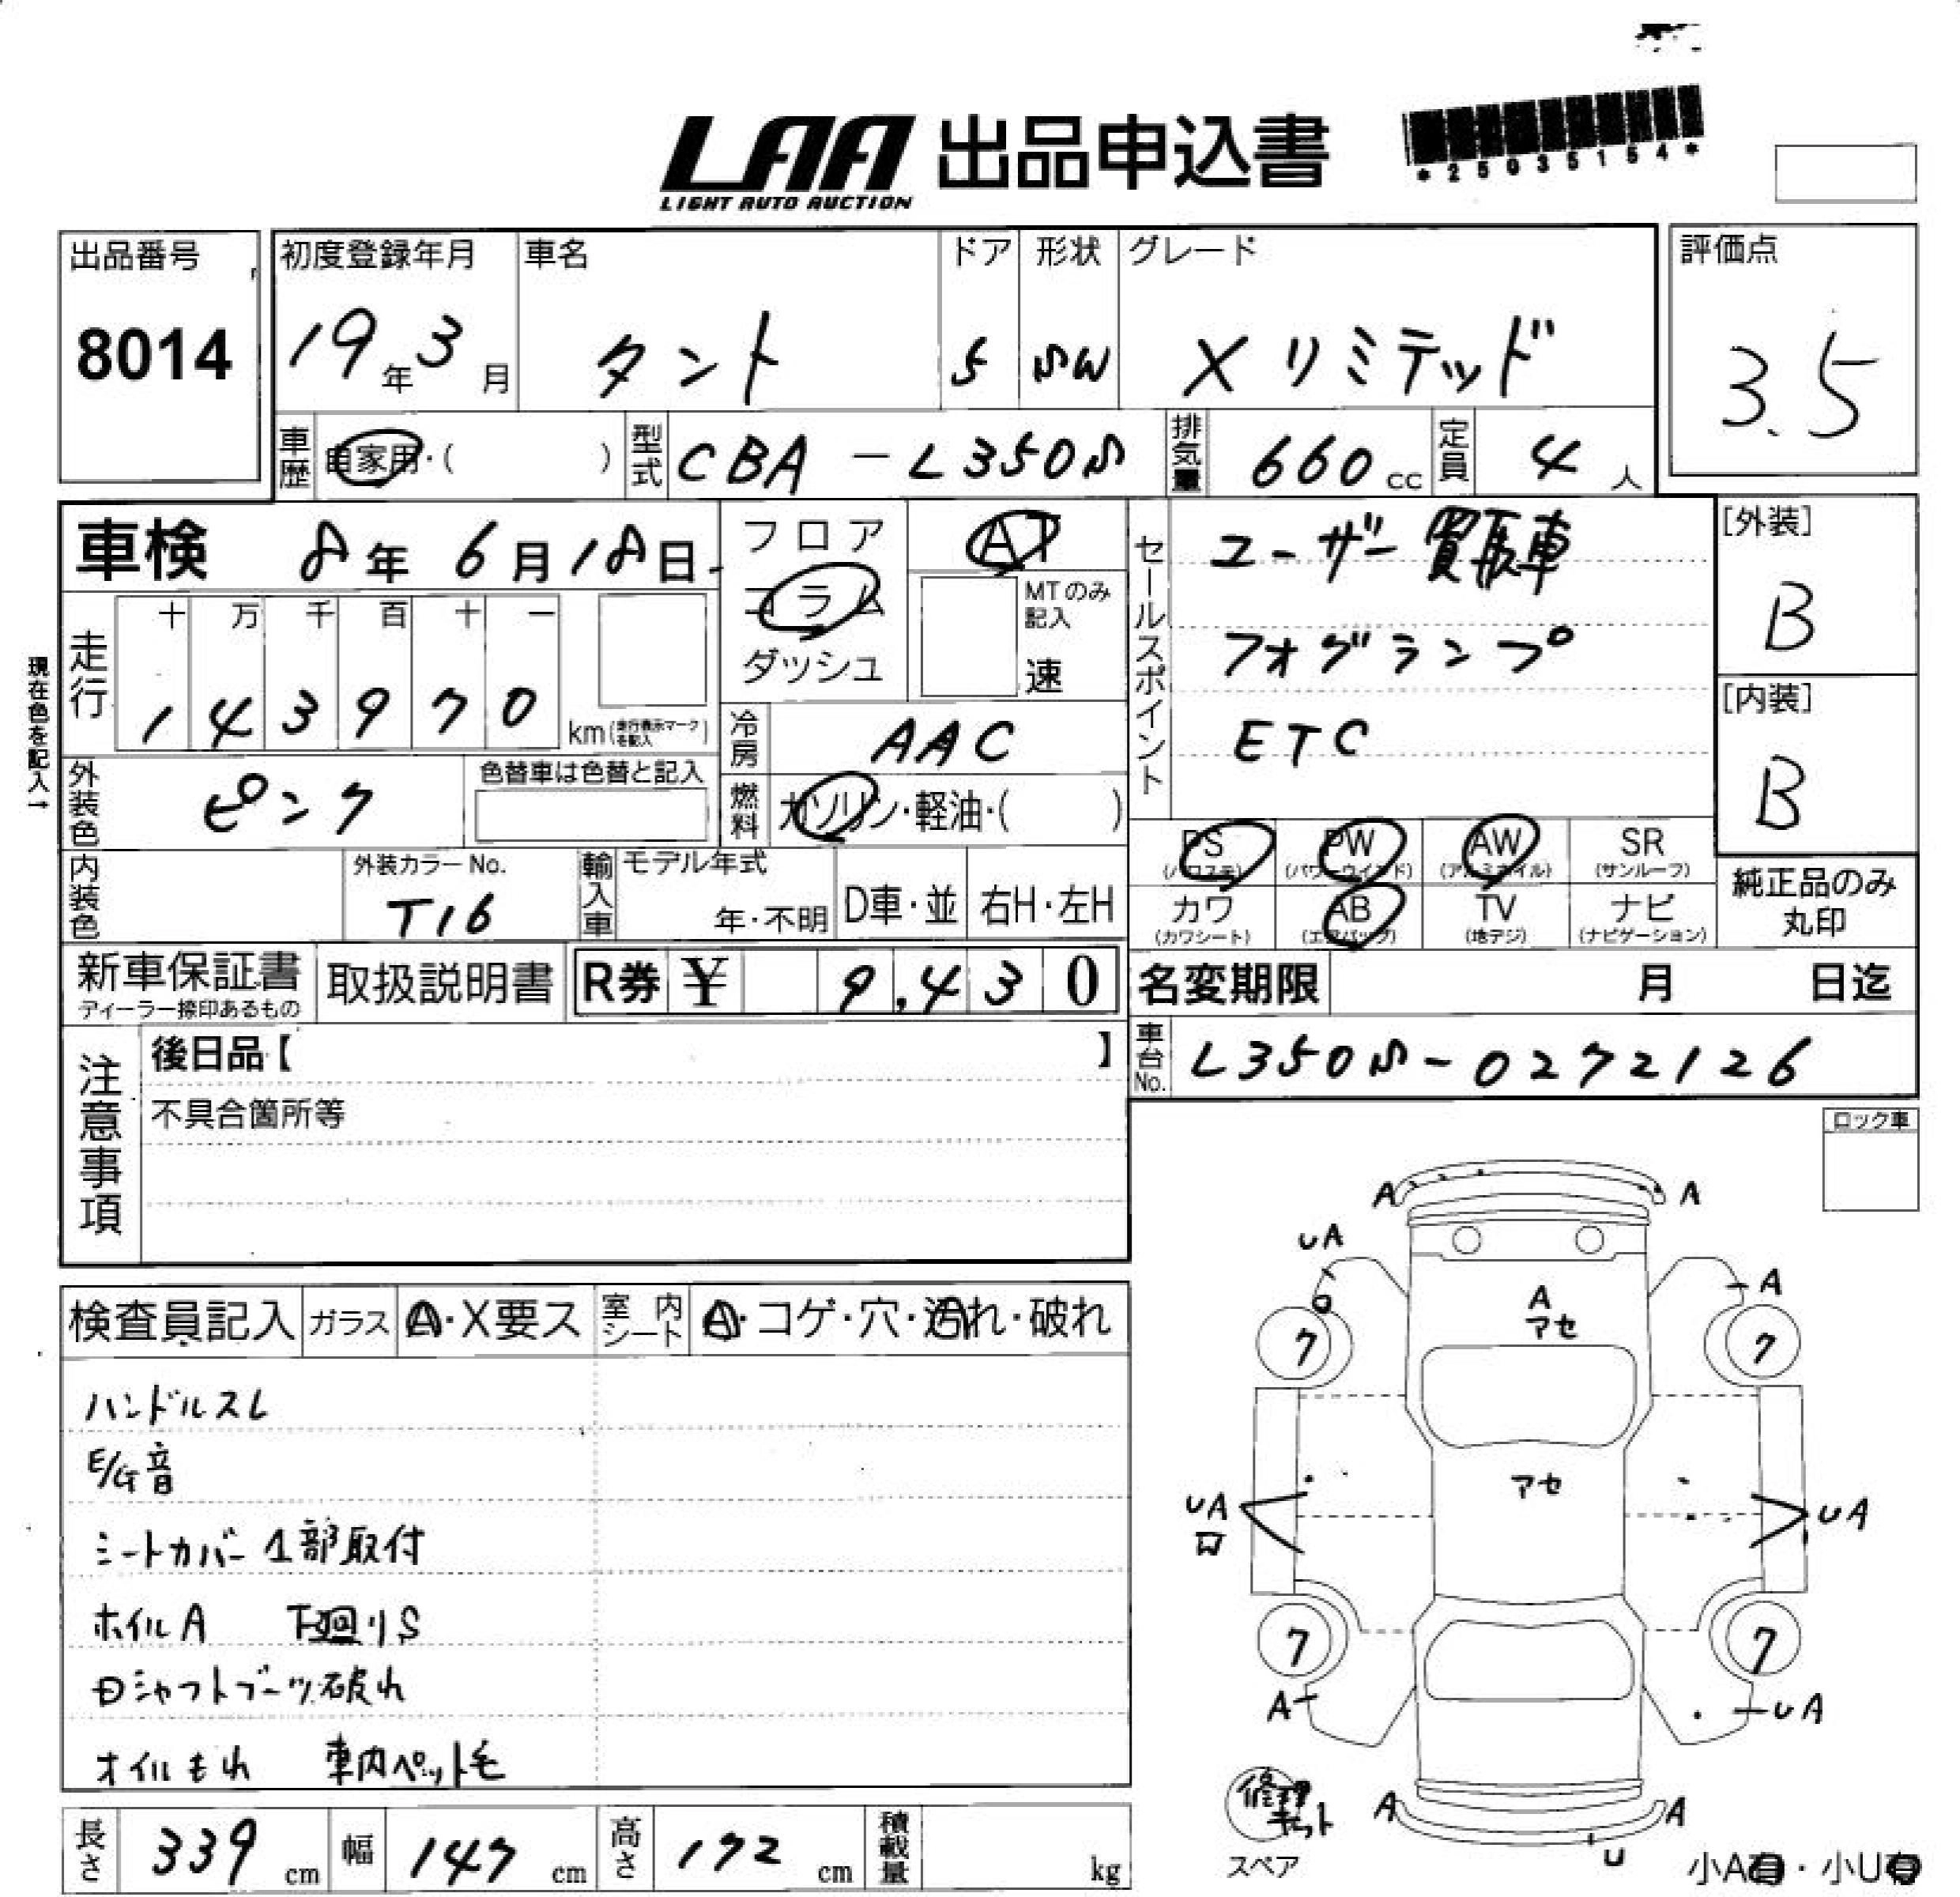 LAA 出品申込書
LIGHT AUTO AUCTION
*25035154*
出品番号
8014
初度登録年月
19年3月
車名
タント
ドア
5
形状
SW
グレード
Xリミテッド
評価点
3.5
車歴 自家用・( )
型式 CBA-L350S
排気量 660cc
定員 4人
車検 8年6月18日
フロア
コラム
ダッシュ
AT
MTのみ記入
速
セールスポイント
ユーザー買取車
フォグランプ
ETC
[外装]
B
[内装]
B
現在色を記入→
走行
十 万 千 百 十 一
1 4 3 9 7 0
km(走行表示マークを記入)
冷房 AAC
外装色 ピンク
色替車は色替と記入
燃料 ガソリン・軽油・( )
PS (パワステ)
PW (パワーウインド)
AW (アルミホイル)
SR (サンルーフ)
カワ (カワシート)
AB (エアバッグ)
TV (地デジ)
ナビ (ナビゲーション)
純正品のみ
丸印
内装色
外装カラーNo.
T16
輸入車
モデル年式
年・不明
D車・並
右H・左H
新車保証書
ディーラー捺印あるもの
取扱説明書
R券 ¥ 9,430
名変期限 月 日迄
注意事項
後日品【 】
不具合箇所等
車台No. L350S-0272126
ロック車
検査員記入
ガラス
A・X要ス
室内シート
A・コゲ・穴・汚れ・破れ
ハンドルスレ
E/G音
シートカバー1部取付
ホイルA 下廻りS
Dシャフトブーツ破れ
オイルもれ 車内ペット毛
A A
UA
A
A
アセ
7 7
アセ
UA
UA
7 7
A
UA
修理キット
スペア
A A
U
小A有・小U有
長さ 339cm
幅 147cm
高さ 172cm
積載量 kg